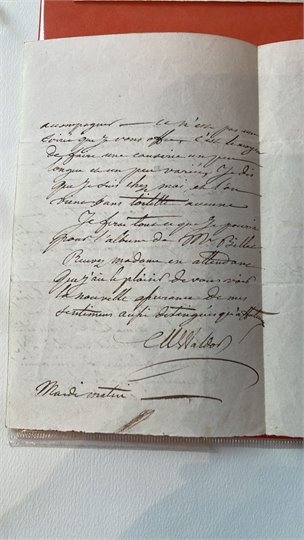 accompagner — ce n'est pas une
soirée que je vous offre, c'est le moyen
de faire une causerie un peu
longue et un peu variée. Je dis
que je suis chez moi et l'on
vient sans toilette aucune
Je ferai tout ce que je pourrai
pour l'album de Mr Billet
Recevez madame en attendant
que j'aie le plaisir de vous voir
la nouvelle assurance de mes
sentimens aussi distingués qu'affectueux
Mardi matin